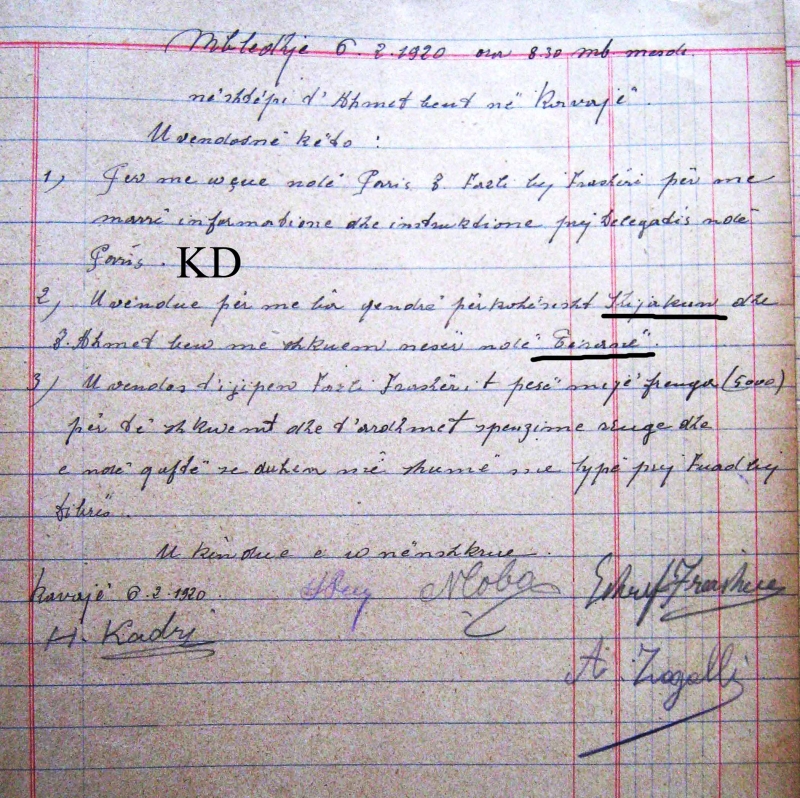 Mbledhje 6.2.1920 ora 8.30 mb mesde
në shtëpi t' Ahmet beut në Kavajë.
U vendosnë këto :
1) Për me çue ndë Paris Z. Fazli bej Frashëri për me
marrë informatione dhe instruktione prej Delegatis ndë
Paris. KD
2) U vendue për me bâ qendrë përkohësisht dhe
Z. Ahmet beu me shkuem nesër ndë Tiranë".
3) U vendos t'ijipen Fazli Frashërit pesë mijë franga (5000)
për të shkuemt dhe t'ardhmet spenzime rruge dhe
e ndë qoftë se duhen më shumë me lypë prej Fuad bej
Dibrës.
U këndue e u nënshkrue.
Kavajë 6.2.1920.
H. Kadri